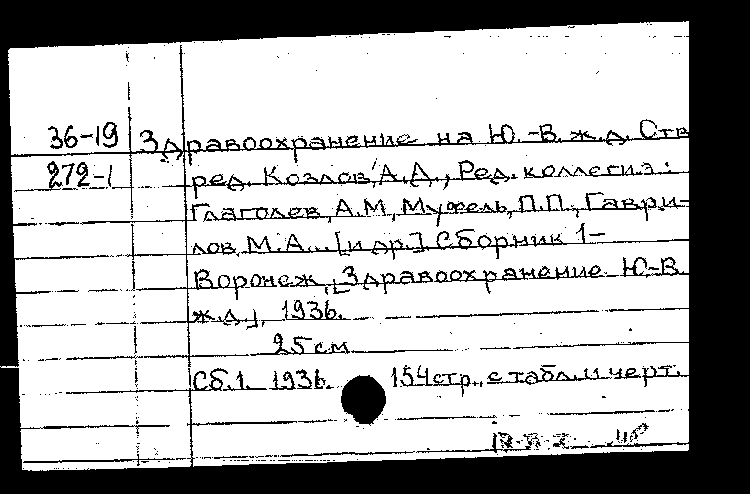 36-19 Здравоохранение на Ю.-В. ж.д. Отв
272-1 ред. Козлов, А.Д., Ред. коллегиз:
Глаголев, А.М, Мужель, П.П., Гаври-
лов, М.А... [и др.] Сборник 1-
Воронеж, [Здравоохранение Ю-В.
ж.д.], 1936.
25 см
Сб.1. 1936. 154 стр., с табл. и черт.